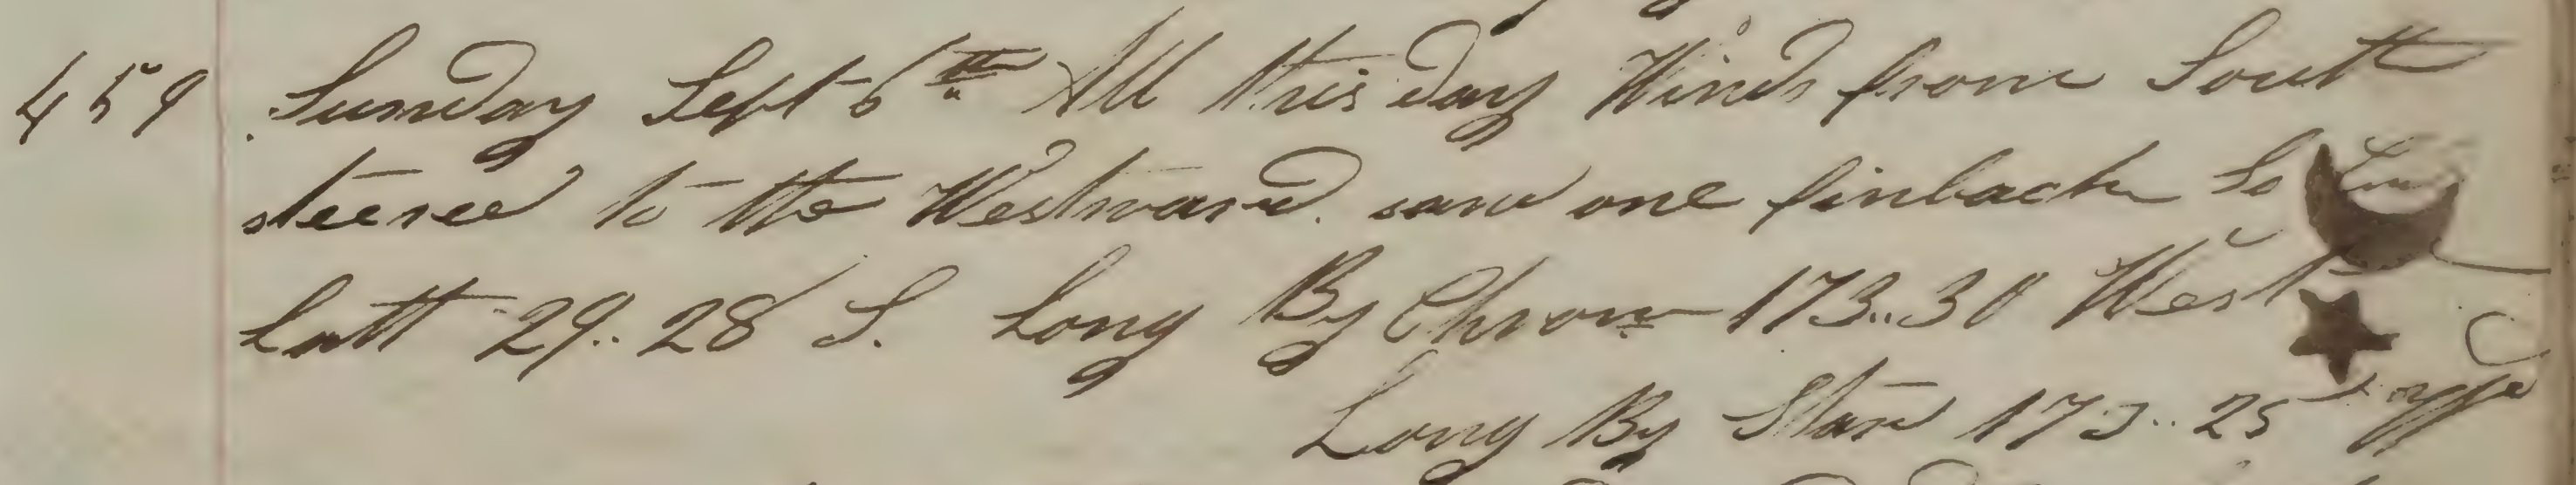 459 Sunday Sept 6th All this day Winds from South
steered to the Westward. saw one finback So
Latt 29..28 S. Long By Chron 173..30 West
Long By Star 173..25